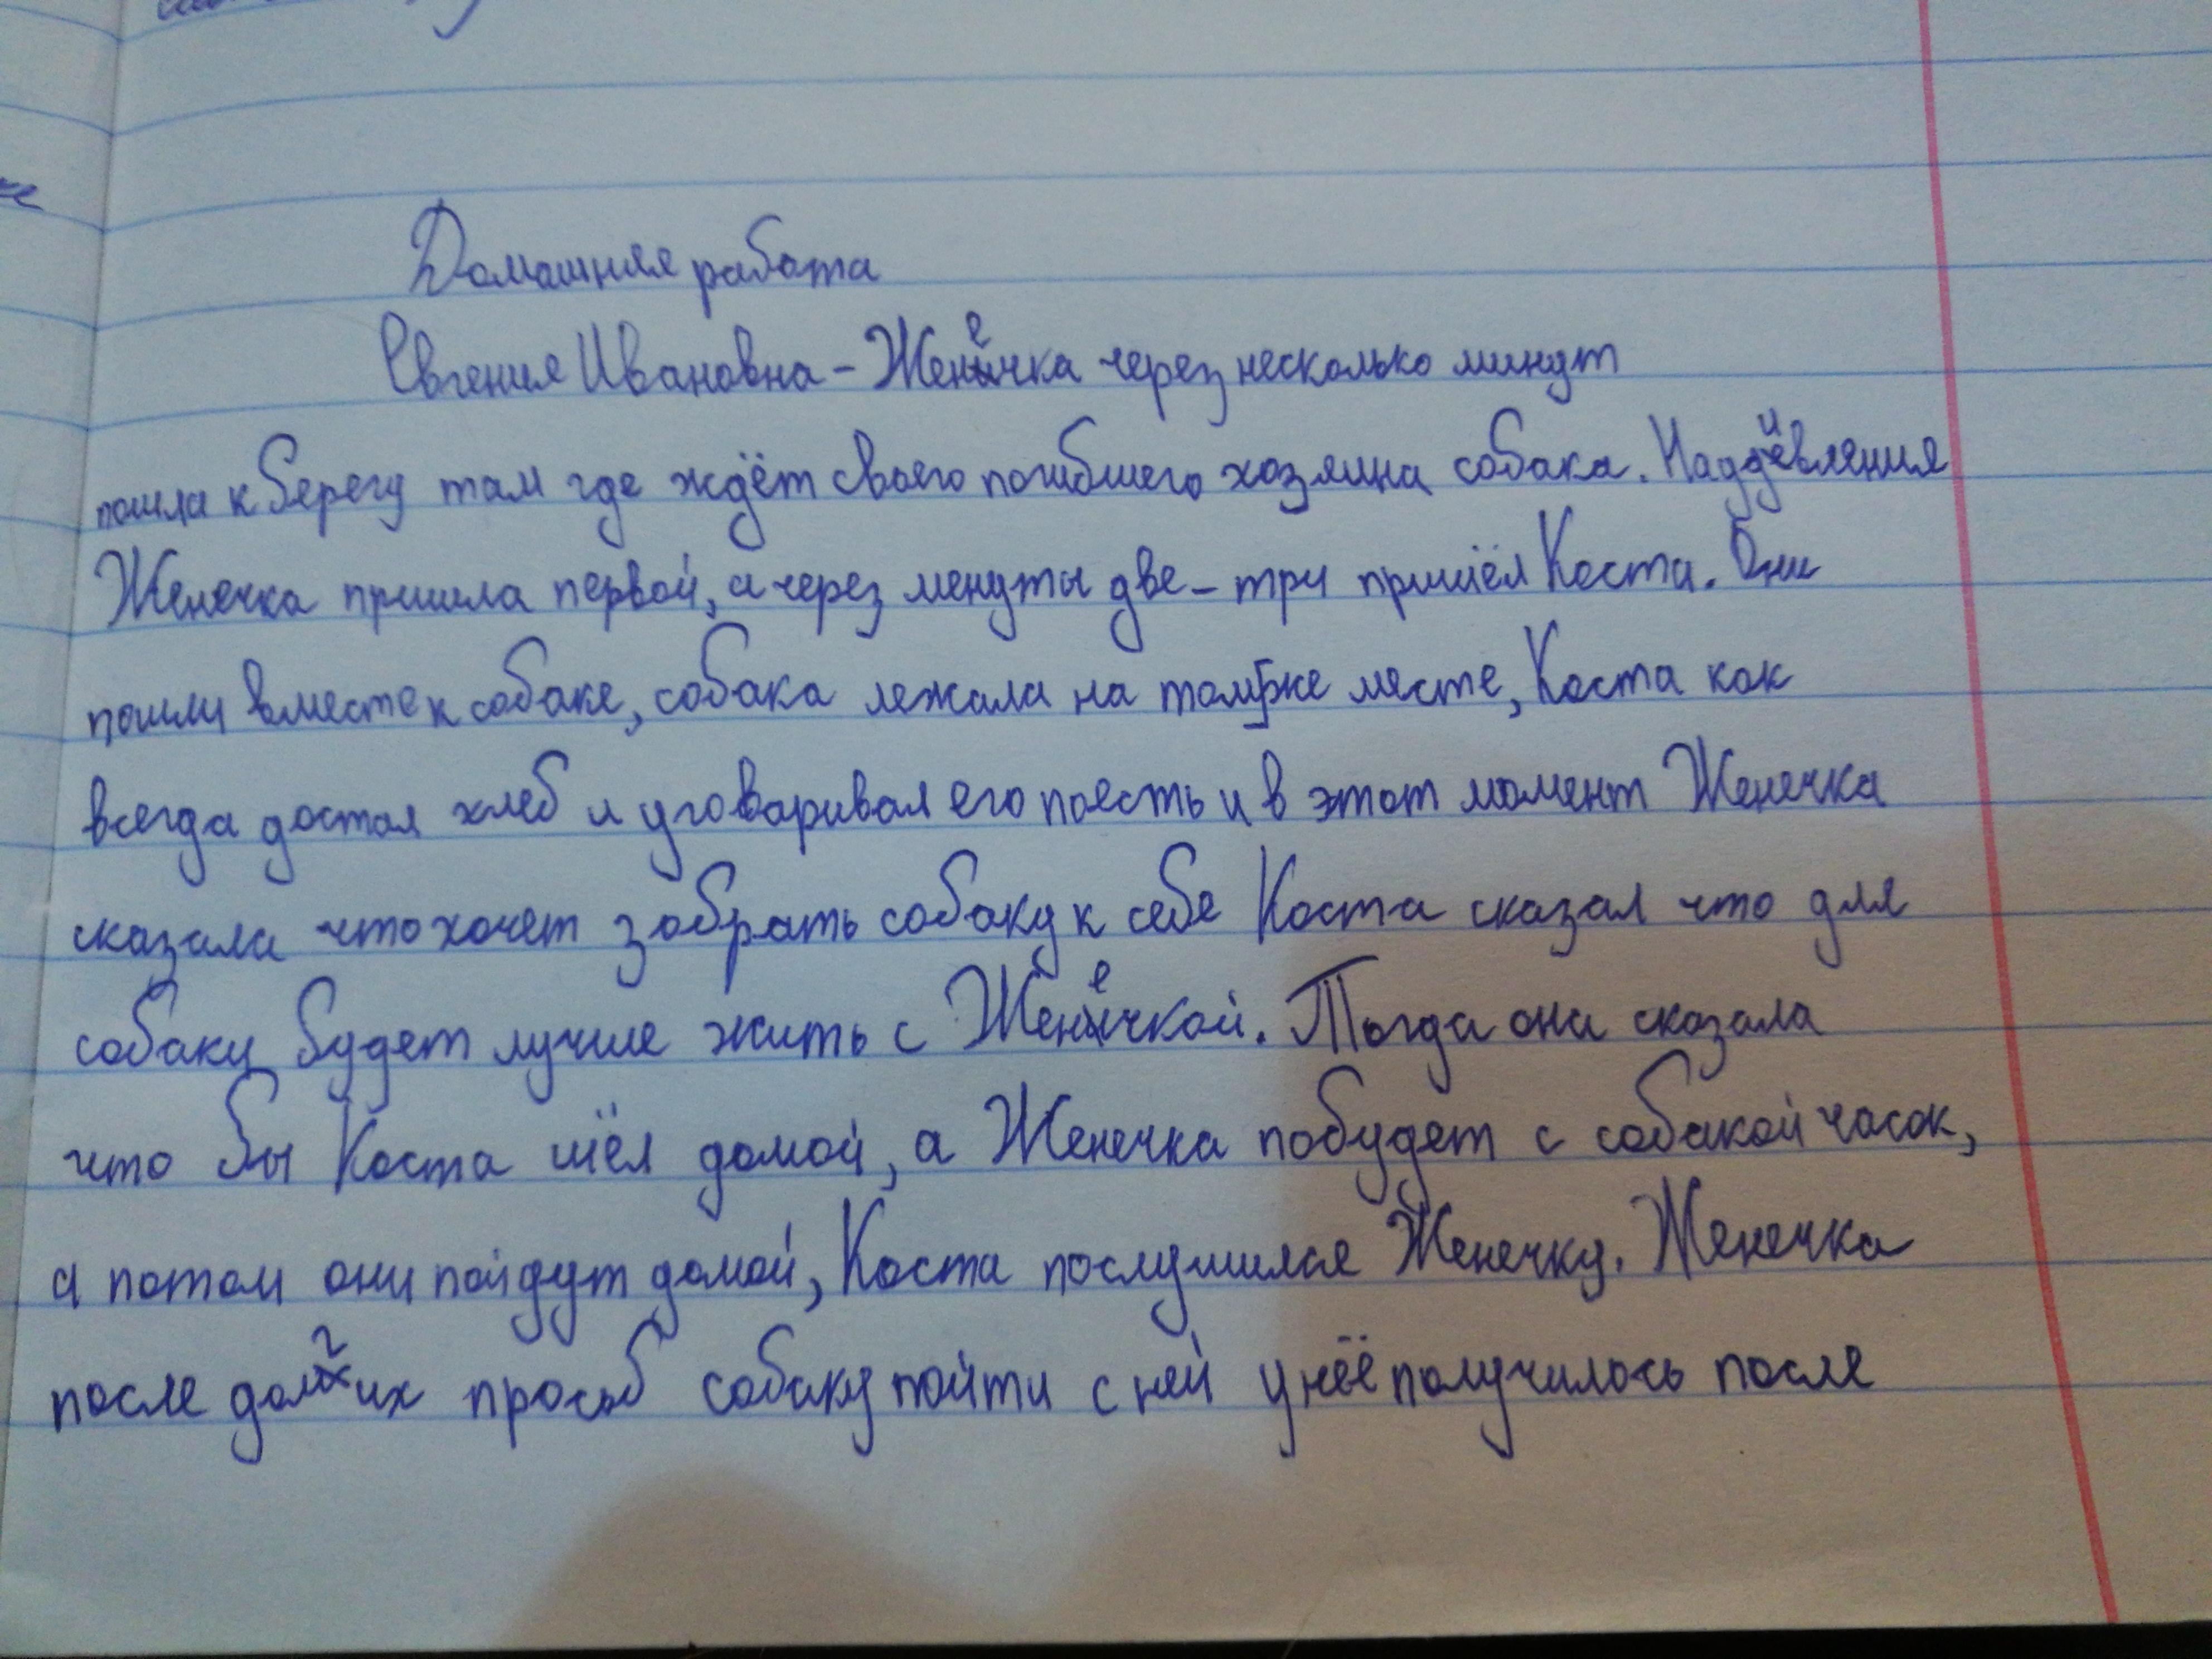 Домашняя работа
Евгения Ивановна - Женечка через несколько минут
пошла к берегу там где ждёт своего погибшего хозяина собака. Наддивления
Женечка пришла первой, а через менуты две - три пришёл Коста. Они
пошли вместе к собаке, собака лежала на томже месте, Коста как
всегда достал хлеб и уговаривал его поесть и в этот момент Женечка
сказала что хочет забрать собаку к себе Коста сказал что для
собаки будет лучше жить с Женечкой. Тогда она сказала
что бы Коста шёл домой, а Женечка побудет с собакой часок,
а потом они пойдут домой, Коста послушился Женечку. Женечка
после долгих просьб собаку пойти с ней у неё получилось после